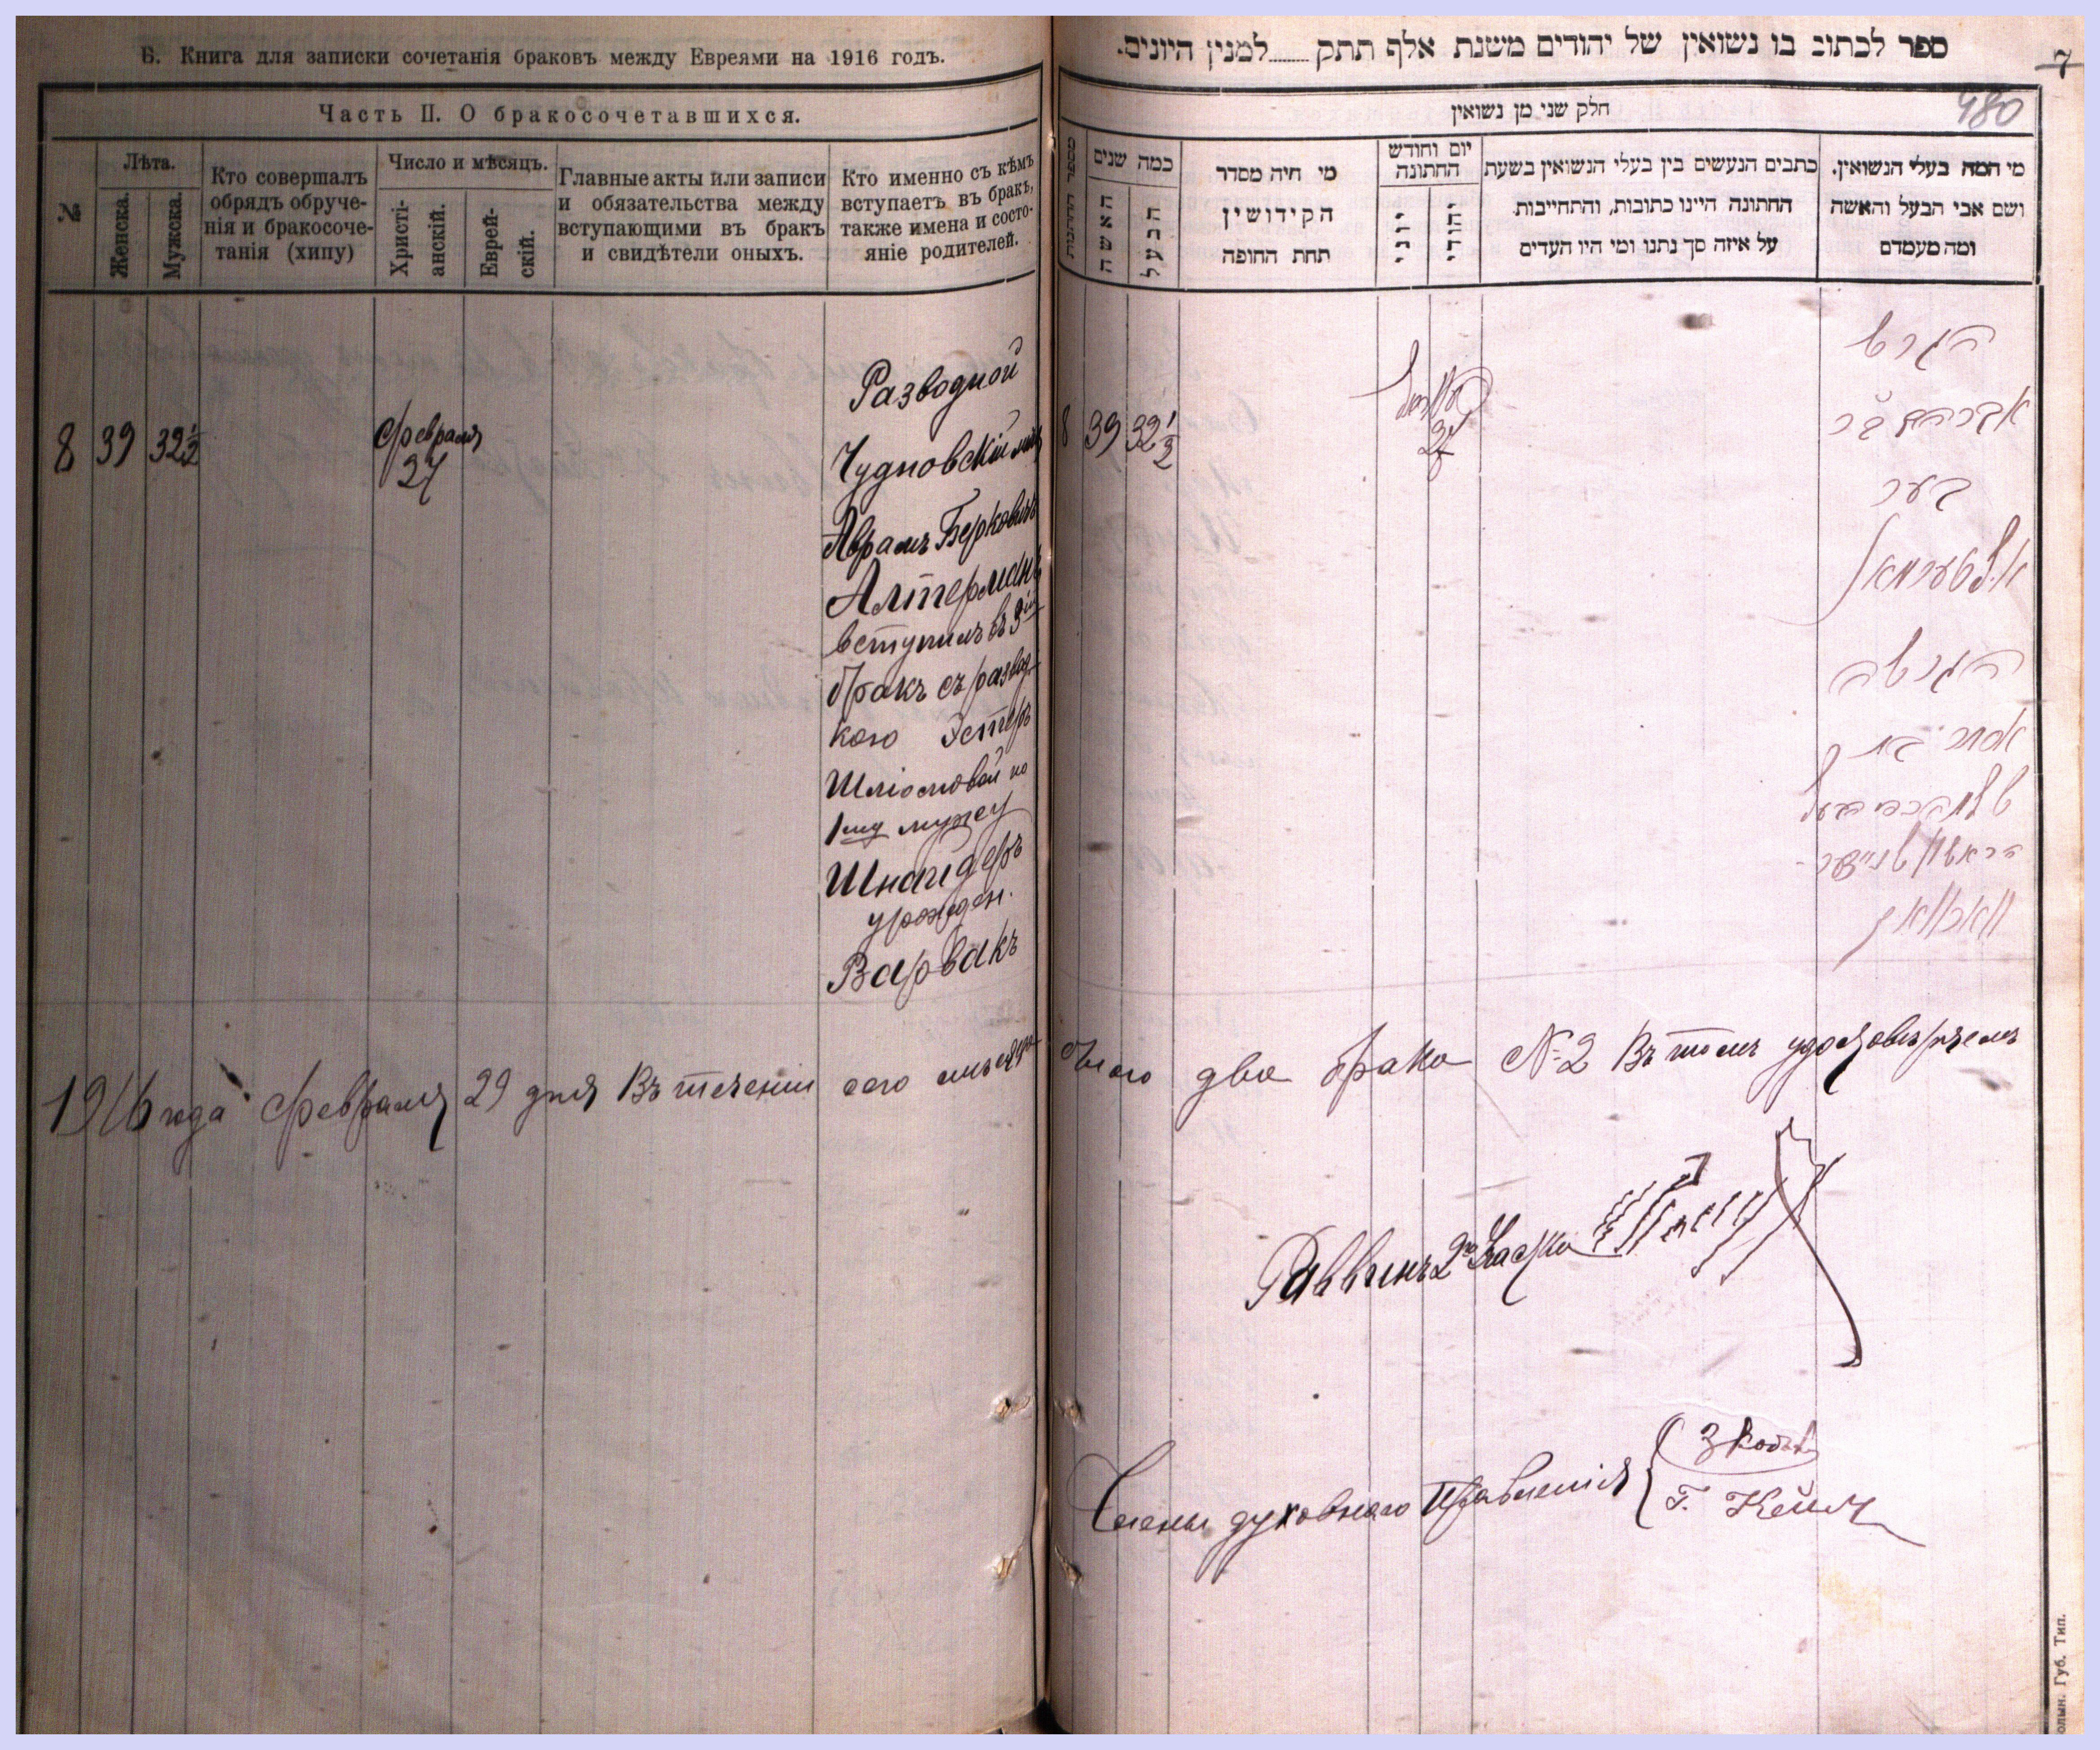 Б. Книга для записки сочетанія браковъ между Евреями на 1916 годъ.
Часть II. О бракосочетавшихся.
№
Лѣта.
Женска.
Мужска.
Кто совершалъ
обрядъ обруче-
нія и бракосоче-
танія (хипу)
Число и мѣсяцъ.
Христі-
анскій.
Еврей-
скій.
Главные акты или записи
и обязательства между
вступающими въ бракъ
и свидѣтели оныхъ.
Кто именно съ кѣмъ
вступаетъ въ бракъ,
также имена и состо-
яніе родителей.
8 39 32½
февраля
27
Разводной
Чудновскій мѣщ
Аврамъ Берковичъ
Алтерманъ
вступилъ въ 3ій
бракъ съ развод
кою Эстеръ
Шліомовой по
1му мужу
Шнайдеръ
урожден.
Варвакъ
1916 года февраля 29 дня Въ теченіи сего мѣсяца
ספר לכתוב בו נשואין של יהודים משנת אלף תתק......למנין היונים.
7
480
חלק שני מן נשואין
מספר החתונות
כמה שנים
האשה
הבעל
מי היה מסדר
הקידושין
תחת החופה
יום וחודש
החתונה
יוני
יהודי
כתבים הנעשים בין בעלי הנשואין בשעת
החתונה היינו כתובות, והתחייבות
על איזה סך נתנו ומי היו העדים
מי המה בעלי הנשואין.
ושם אבי הבעל והאשה
ומה מעמדם
8 39 32½
הגרש
אברהם בר
בער
אלטערמאן
הגרושה
הראשון שניידער
было два брака № 2 Въ томъ удостовѣряемъ
Раввинъ 2го участка
Члены духовнаго Правленія
Г. Кейл
олын. Губ. Тип.